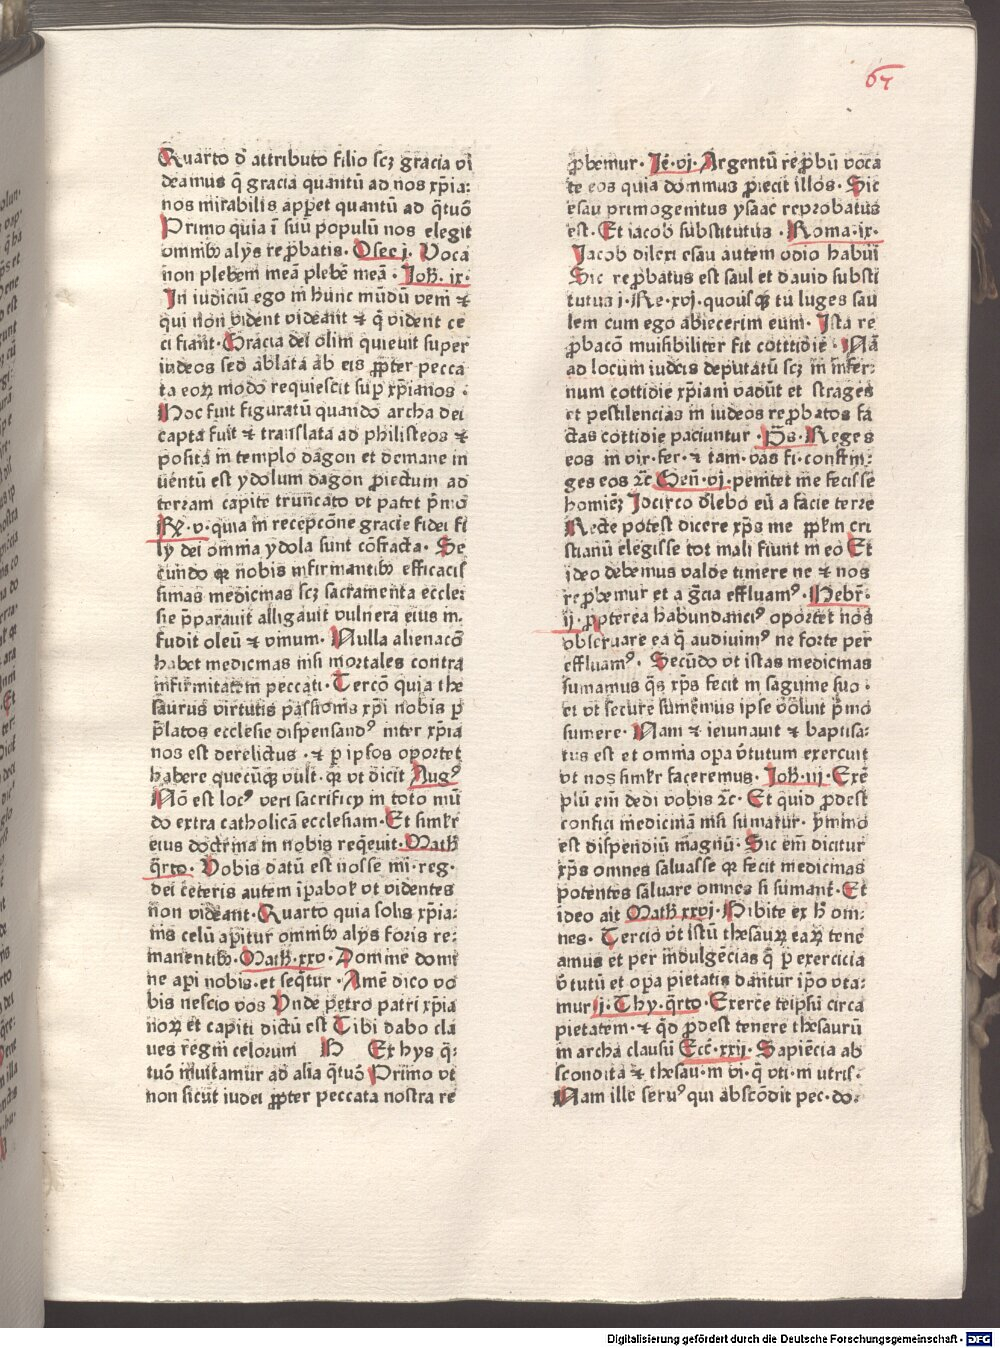 67
Quarto d̄ attributo filio scꝫ gracia vi
deamus q̄ gracia quantū ad nos xp̄ia:
nos mirabilis apꝑet quantū ad q̄tuō
Primo quia ī suū populū nos elegit
omnibꝫ alijs reꝓbatis. Osee j. Voca
non plebem meā plebē meā. Joh. ix.
In iudiciū ego in hunc mūdū veni ⁊
qui non vident videant ⁊ q̄ vident ce
ci fiant. Gracia dei olim quieuit super
iudeos sed ablata ab eis ꝓpter pecca
ta eoꝝ modo requiescit suꝑ xp̄ianos.
Hoc fuit figuratū quando archa dei
capta fuit ⁊ translata ad philisteos ⁊
posita in templo dagon et demane in
uentū est ydolum dagon ꝓiectum ad
terram capite truncato vt patet p̄mo
Rꝫ. v. quia in recepcōne gracie fidei fi
lij dei omnia ydola sunt cōfracta. Se
cundo qꝛ nobis infirmantibꝫ efficacis
simas medicinas scꝫ sacramenta eccle:
sie p̄parauit alligauit vulnera eius in:
fudit oleū ⁊ vinum. Nulla alienacō
habet medicinas nisi mortales contra
infirmitatem peccati. Tercō quia the
saurus virtutis passionis xp̄i nobis ꝑ
p̄latos ecclesie dispensandꝰ inter xp̄ia
nos est derelictus. ⁊ ꝑ ipsos oportet
habere quecūqꝫ vult. qꝛ vt dicit Augꝰ
Nō est locꝰ veri sacrificij in toto mū
do extra catholicā ecclesiam. Et simlr
eius doctrina in nobis req̄euit. Math
q̄rto. Vobis datū est nosse mi. reg.
dei ceteris autem ī parabol vt videntes
non videant. Quarto quia solis xp̄ia:
nis celū aꝑitur omnibꝫ alijs foris re:
manentibꝫ. Math. xxv. Domine domi
ne aperi nobis. et seq̄tur. Amē dico vo
bis nescio vos Vnde petro patri xp̄ia
noꝝ et capiti dictū est Tibi dabo cla
ues regni celorum H Ex hys q̄:
tuō inuitamur ad alia q̄tuō Primo vt
non sicut iudei ꝓpter peccata nostra re
ꝓbemur. Je. vj. Argentū reꝓbū voca
te eos quia dominus ꝓiecit illos. Sic
esau primogenitus ysaac reprobatus
est. Et iacob substitutus. Roma. ix.
Jacob dilexi esau autem odio habui
Sic reꝓbatus est saul et dauid substi
tutus j. Re. xvj. quousqꝫ tu luges sau
lem cum ego abiecerim eum. Ista re
ꝓbacō inuisibiliter fit cottidie. Nā
ad locum iudeis deputatū scꝫ in infer:
num cottidie xp̄iani vadūt et strages
et pestilencias in iudeos reꝓbatos fa
ctas cottidie paciuntur. Ps. Reges
eos in vir. fer. ⁊ tam. vas fi. confrin:
ges eos ⁊c̄ Gen̄. vj. penitet me fecisse
hominē Jdcirco d̄lebo eū a facie terre
Recte potest dicere xp̄s me ꝓplm cri
stianū elegisse tot mali fiunt in eo Et
ideo debemus valde timere ne ⁊ nos
reꝓbemur et a gr̄cia effluamꝰ. Hebr̄.
ij. ꝓpterea habundanciꝰ oportet nos
obseruare ea q̄ audiuimꝰ ne forte per
effluamꝰ. Secūdo vt istas medicinas
sumamus q̄s xp̄s fecit in sagwine suo.
et vt secure sumemus ipse voluit p̄mo
sumere. Nam ⁊ ieiunauit ⁊ baptisa:
tus est et omnia oꝑa v̄tutum exercuit
vt nos simlr faceremus. Joh. iij. Exē
plū em̄ dedi vobis ⁊c̄. Et quid ꝓdest
confici medicinā nisi sumatur. ymmo
est dispendiū magnū. Sic em̄ dicitur
xp̄s omnes saluasse qꝛ fecit medicinas
potentes saluare omnes si sumant̄. Et
ideo ait Math xxvj. Bibite ex h̄ om:
nes. Tercio vt istū thesauꝝ eaꝝ tene
amus et per indulgēcias q̄ ꝑ exercicia
v̄tutū et oꝑa pietatis dantur ip̄o vta:
mur j. Thy. q̄rto. Exerce teipsū circa
pietatem. ⁊ q̄d ꝓdest tenere thesaurū
in archa clausū Ecc̄. xxij. Sapiēcia ab
scondita ⁊ thesau. in vi. q̄ vti. in vtris.
Nam ille seruꝰ qui abscōdit pec. do:
Digitalisierung gefördert durch die Deutsche Forschungsgemeinschaft - DFG